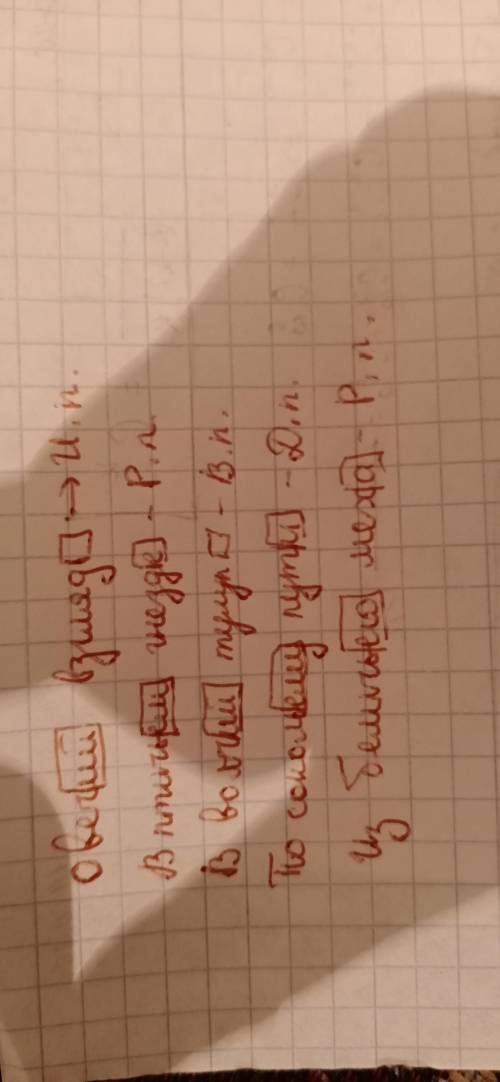 Овечий взгляд → И.п.
В птичьем гнезде – Р.п.
В волчий тулуп – В.п.
По сокольему пути – Д.п.
Из беличьего меха – Р.п.